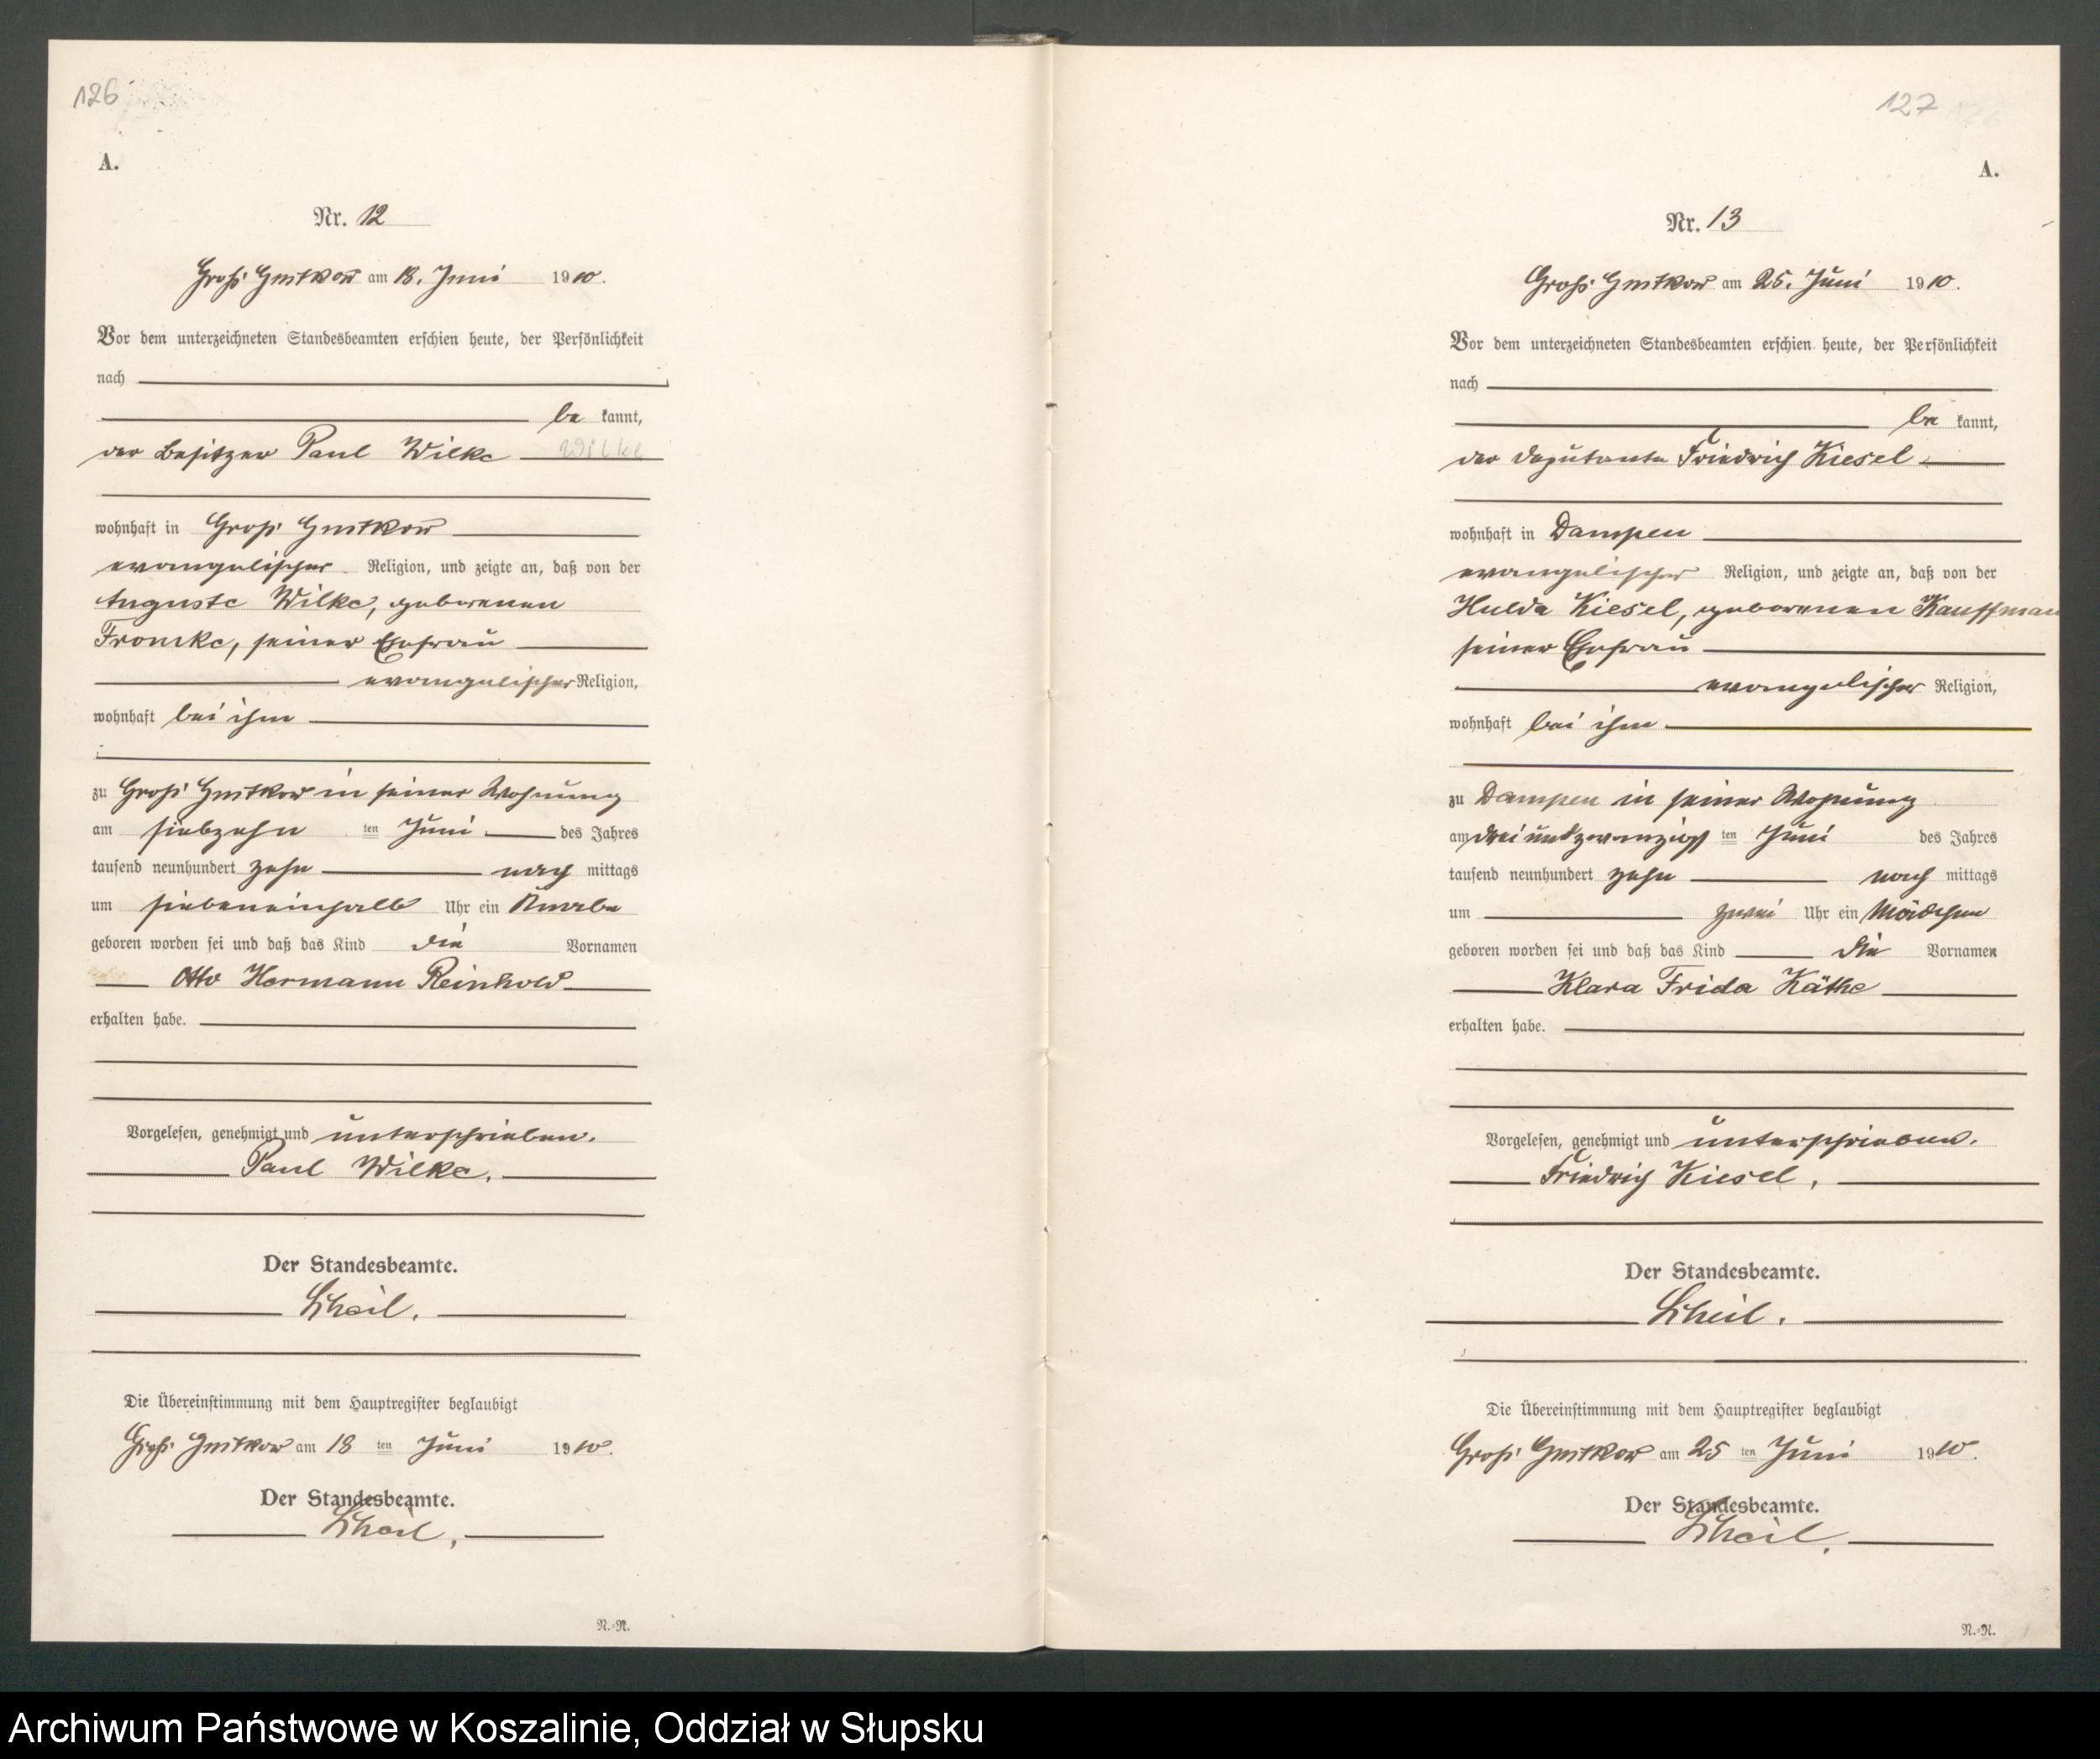 126
A.
Nr. 12
Groß Gustkow am 18. Juni 1910.
Vor dem unterzeichneten Standesbeamten erschien heute, der Persönlichkeit
nach
be kannt,
der Besitzer Paul Wilke Wilke
wohnhaft in Groß Gustkow
evangelischer Religion, und zeigte an, daß von der
Auguste Wilke, geborenen
Fromke, seiner Ehefrau
evangelischer Religion,
wohnhaft bei ihm
zu Groß Gustkow in seiner Wohnung
am siebzehn ten Juni des Jahres
tausend neunhundert zehn nach mittags
um siebeneinhalb Uhr ein Knabe
geboren worden sei und daß das Kind die Vornamen
Otto Hermann Reinhold
erhalten habe.
Vorgelesen, genehmigt und unterschrieben.
Paul Wilke.
Der Standesbeamte.
Die Übereinstimmung mit dem Hauptregister beglaubigt
Groß Gustkow am 18 ten Juni 1910.
Der Standesbeamte.
N.-N.
127
A.
Nr. 13
Groß Gustkow am 25. Juni 1910.
Vor dem unterzeichneten Standesbeamten erschien heute, der Persönlichkeit
nach
be kannt,
der Deputante Friedrich Kiesel
wohnhaft in Dampen
evangelischer Religion, und zeigte an, daß von der
Hulda Kiesel, geborenen Kauffman
seiner Ehefrau
evangelischer Religion,
wohnhaft bei ihm
zu Dampen in seiner Wohnung
am dreiundzwanzigs ten Juni des Jahres
tausend neunhundert zehn nach mittags
um zwei Uhr ein Mädchen
geboren worden sei und daß das Kind die Vornamen
Klara Frida Käthe
erhalten habe.
Vorgelesen, genehmigt und unterschrieben.
Friedrich Kiesel.
Der Standesbeamte.
Die Übereinstimmung mit dem Hauptregister beglaubigt
Groß Gustkow am 25 ten Juni 1910.
Der Standesbeamte.
N.-N.
Archiwum Państwowe w Koszalinie, Oddział w Słupsku